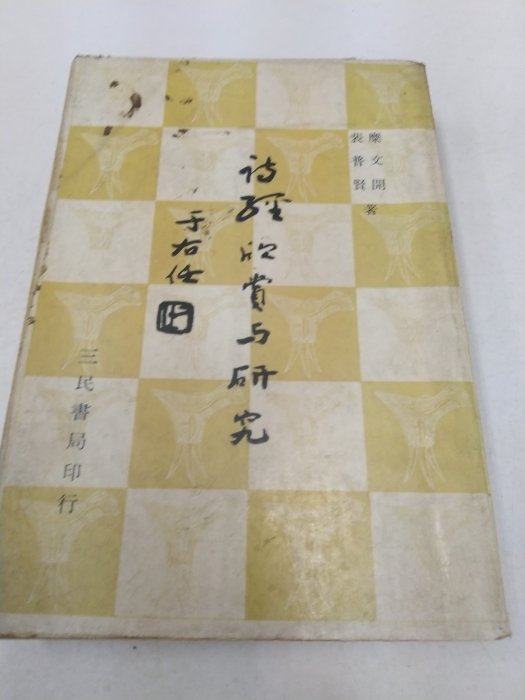 糜文開
裴普賢
著
詩經欣賞与研究
于右任
三民書局印行